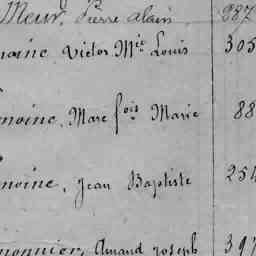 Meur, Pierre alain 887
moine, Victor Mie Louis 305
moine, Marc fois Marie 88
moine, Jean Baptiste 254
monnier, Amand Joseph 397